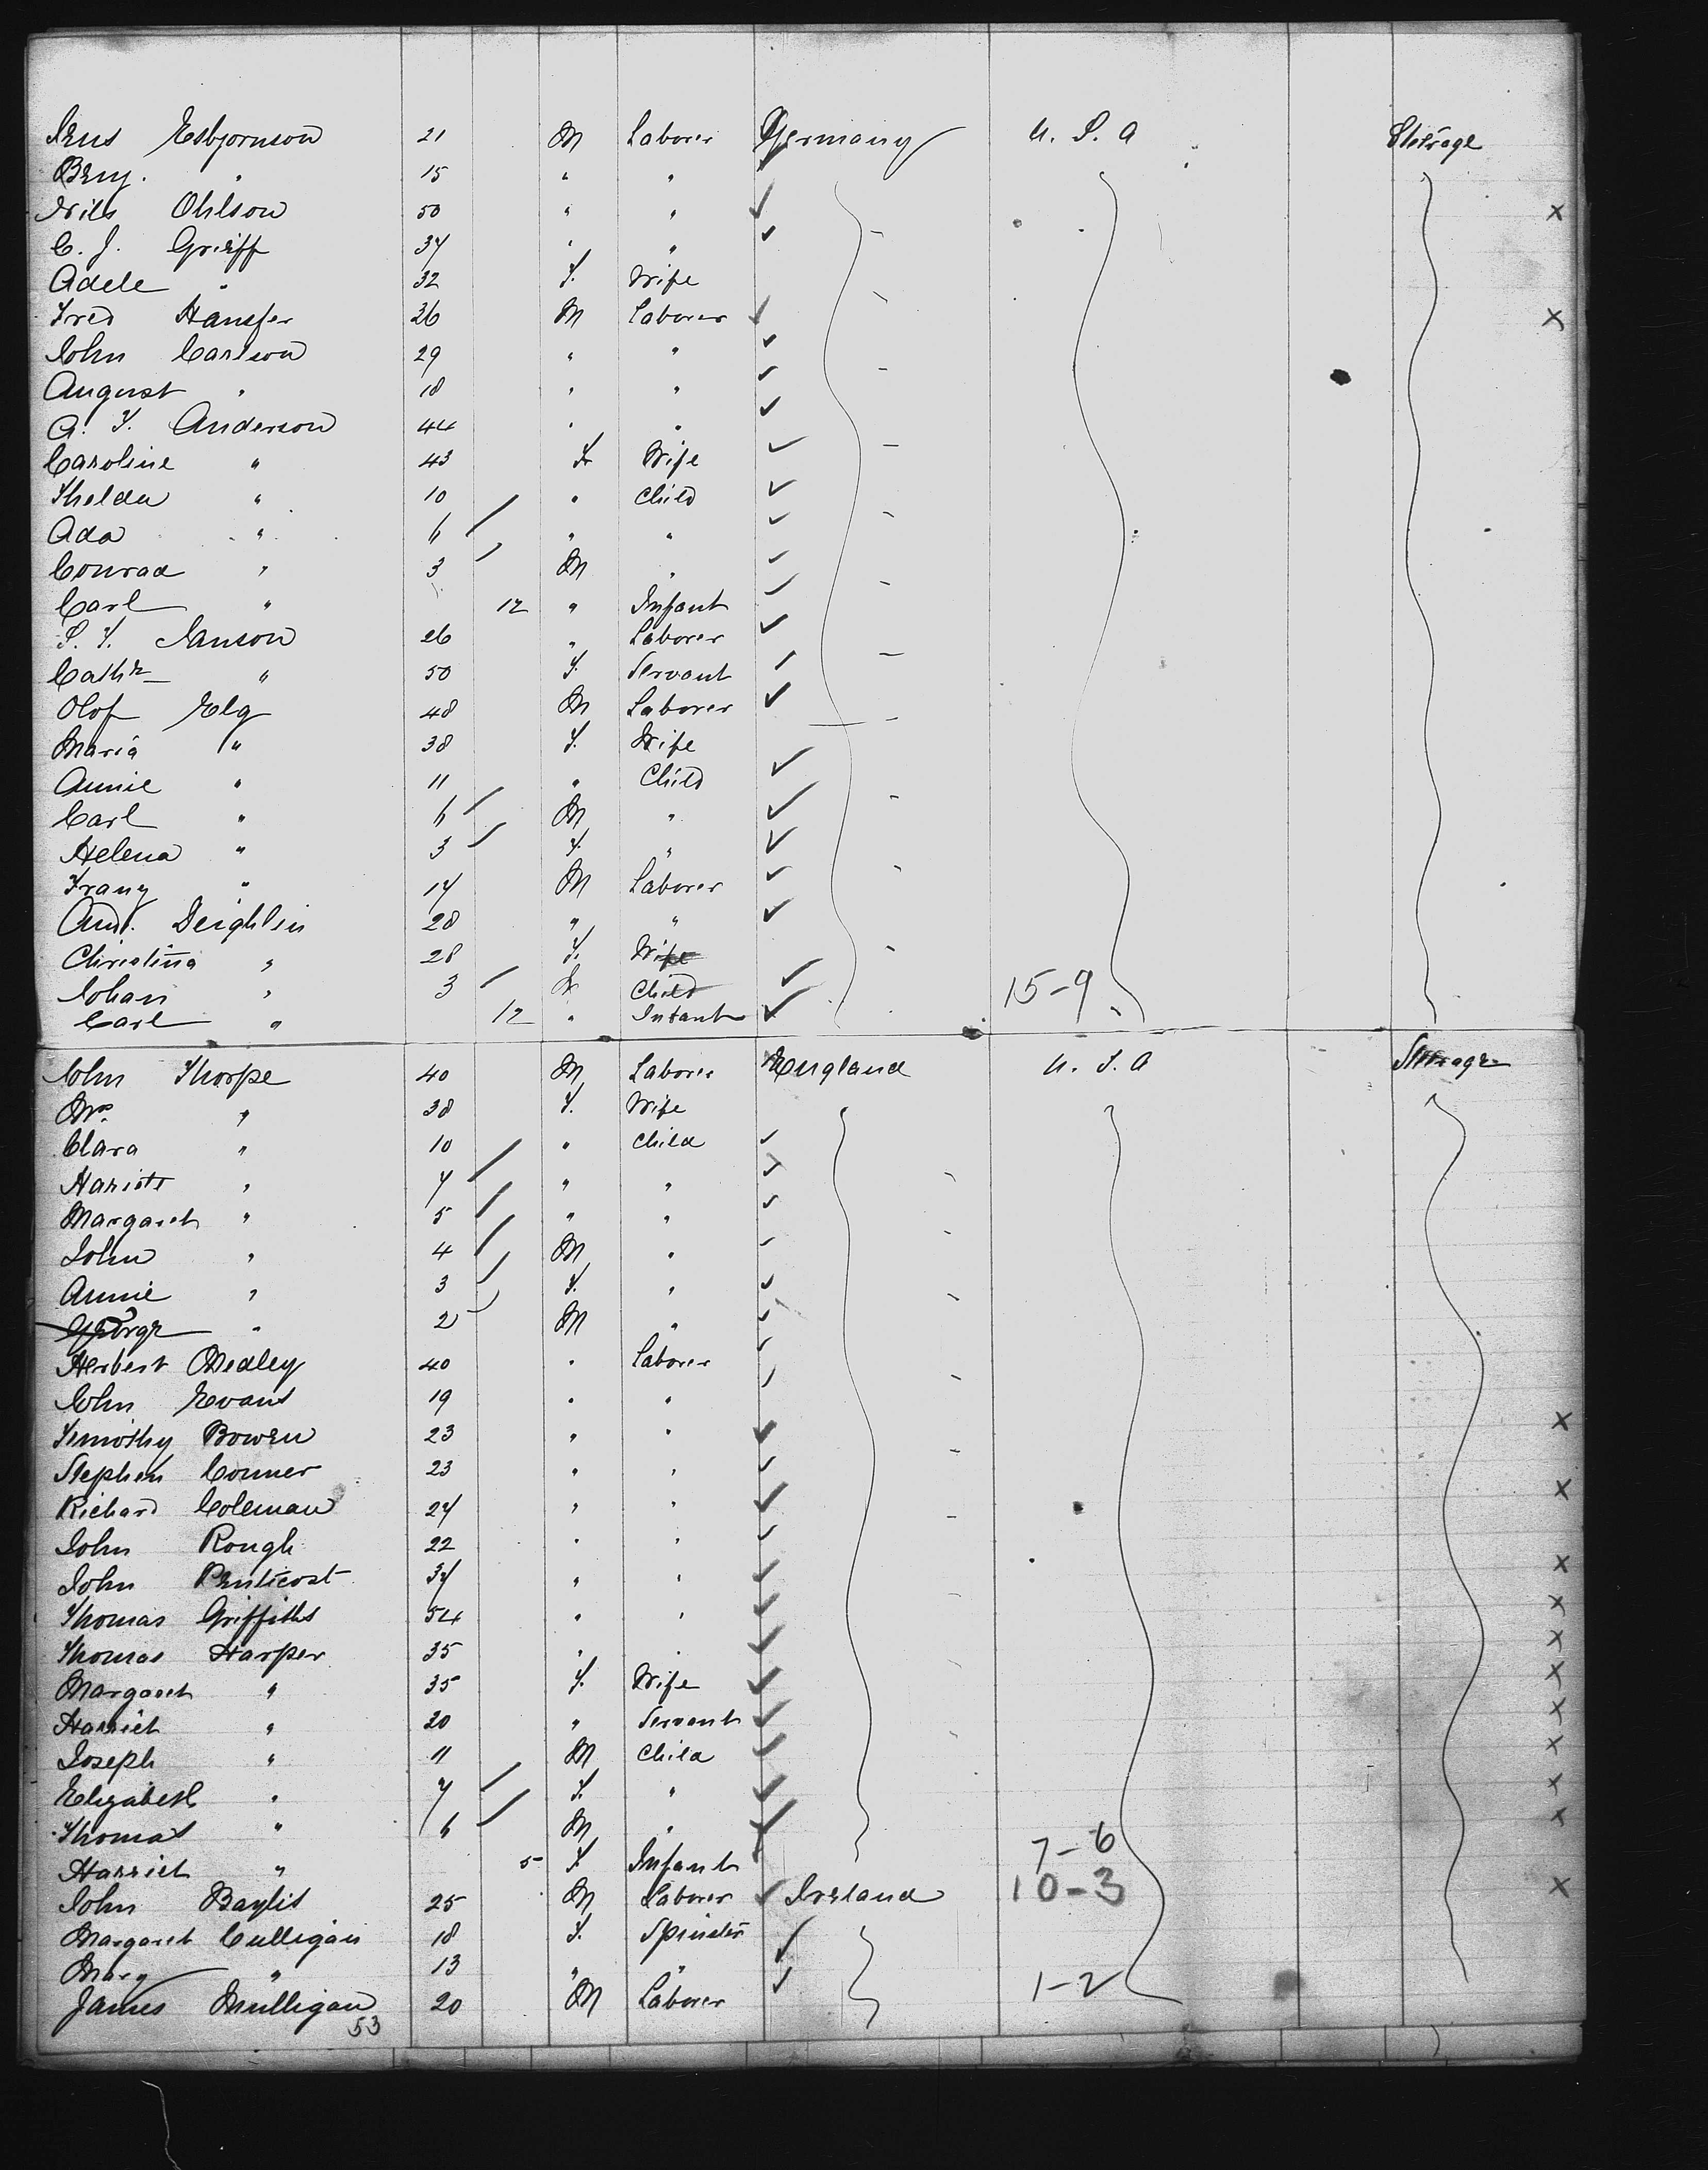 Jens Esbjornson 21 M Laborer Germany U. S. A Steerage
Benj. " 15 " "
Nils Ohlson 50 " " x
C. J. Greiff 34 " "
Adele " 32 F. Wife
Fred Hansfer 26 M Laborer x
John Carlson 29 " "
August " 18 " "
A. F. Anderson 44 " "
Caroline " 43 F Wife
Thelda " 10 " Child
Ada " 6 " "
Conrad " 3 M "
Carl " 12 " Infant
S. F. Janson 26 " Laborer
Cath " 50 F. Servant
Olof Elg 48 M Laborer
Maria " 38 F. Wife
Annie " 11 " Child
Carl " 6 M "
Helena " 3 F. "
Franz " 14 M Laborer
And. Deighlin 28 " "
Christina " 28 F. Wife
Johan " 3 Child 15-9
Carl " 12 " Infant
John Thorpe 40 M Laborer England U. S. A Steerage
Mrs. " 38 F. Wife
Clara " 10 " Child
Hariott " 7 " "
Margaret " 5 " "
John " 4 M "
Annie " 3 F. "
George " 2 M "
Herbert Medley 40 " Laborer
John Evans 19 " "
Timothy Bowen 23 " " x
Stephen Conner 23 " "
Richard Coleman 24 " " x
John Rough 22 " "
John Penticost 34 " " x
Thomas Griffiths 54 " " x
Thomas Harper 35 " " x
Margaret " 35 F. Wife x
Harriet " 20 " Servant x
Joseph " 11 M Child x
Elizabeth " 7 F. " x
Thomas " 6 M " x
Harriet " 5 F Infant 7-6
John Baylis 25 M Laborer Ireland 10-3 x
Margaret Culligan 18 F. Spinster
Mary " 13 " "
James Mulligan 20 M Laborer 1-2
53